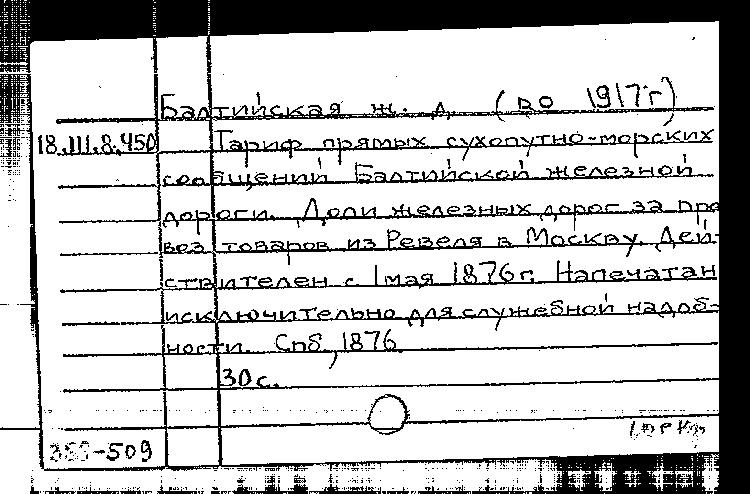 Балтийская ж. д. (до 1917г)
18.III.8.450 Тариф прямых сухопутно-морских
сообщений Балтийской железной
дороги. Доли железных дорог за про
воз товаров из Ревеля в Москву. Дей-
ствителен с 1 мая 1876г. Напечатан
исключительно для служебной надоб-
ности. Спб, 1876.
30 с.
-509